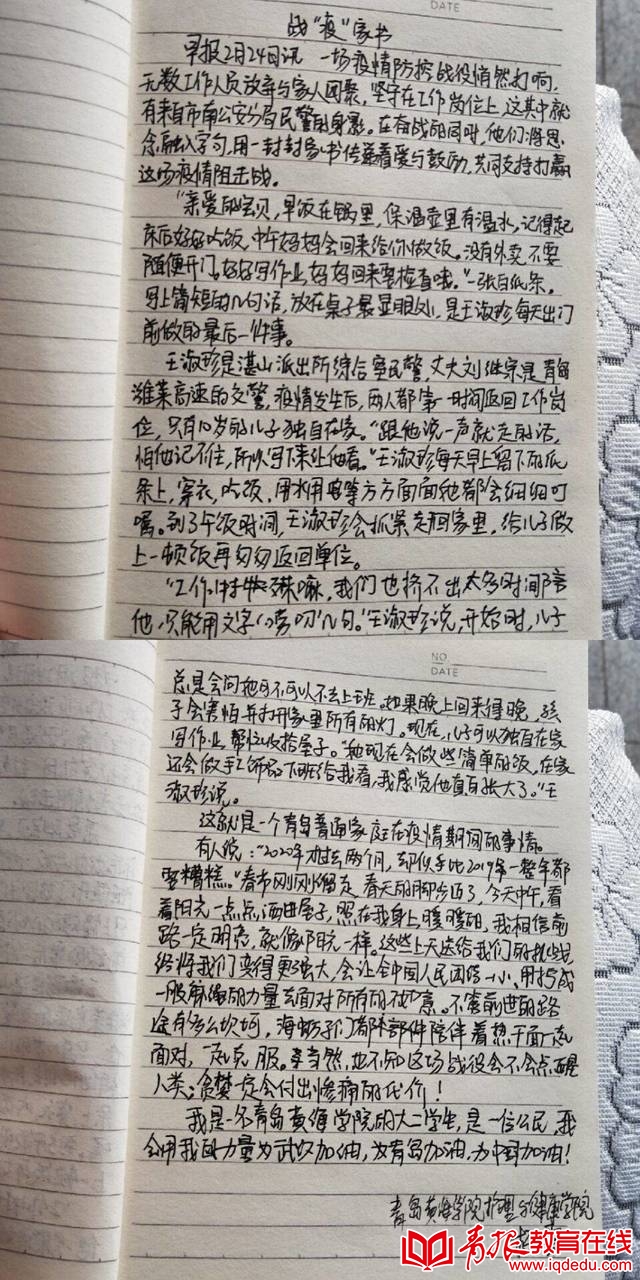 DATE
战“疫”家书
早报2月24日讯 一场疫情防控战役悄然打响,
无数工作人员放弃与家人团聚,坚守在工作岗位上,这其中就
有来自市南公安分局民警的身影。在奋战的同时,他们将思
念融入字句,用一封封家书传递着爱与鼓励,共同支持打赢
这场疫情阻击战。
“亲爱的宝贝,早饭在锅里,保温壶里有温水,记得起
床后好好吃饭,中午妈妈会回来给你做饭。没有外卖,不要
随便开门。好好写作业,妈妈回来要检查哦。”一张白纸条,
写上简短的几句话,放在桌子最显眼处,是王淑珍每天出门
前做的最后一件事。
王淑珍是湛山派出所综合室民警,丈夫刘继宗是青岛
潍莱高速的交警,疫情发生后,两人都第一时间返回工作岗
位,只有10岁的儿子独自在家。“跟他说一声就走的话,
怕他记不住,所以写下来让他看。”王淑珍每天早上留下的纸
条上,穿衣、吃饭、用水用电等方方面面她都会细细叮
嘱。到了午饭时间,王淑珍会抓紧赶回家里,给儿子做
上一顿饭再匆匆返回单位。
“工作特殊嘛,我们也挤不出太多时间陪
他,只能用文字“唠叨”几句。”王淑珍说,开始时,儿子
NO
DATE
总是会问她可不可以不去上班。如果晚上回来得晚,孩
子会害怕并打开家里所有的灯。现在,儿子可以独自在家
写作业,帮忙收拾屋子。“他现在会做些简单的饭,在家
还会做手工饰品下班给我看,我感觉他真的长大了。”王
淑珍说。
这就是一个青岛普通家庭在疫情期间的事情。
有人说:“2020年才过去两个月,却似乎比2019年一整年都
要糟糕。”春节刚刚溜走,春天的脚步近了,今天中午,看
着阳光一点点洒进屋子,照在我身上,暖暖的,我相信前
路一定明亮,就像阳光一样。这些上天送给我们的挑战,
终将我们变得更强大,会让全中国人民团结一心,用拧成
一股麻绳的力量去面对所有的恶意。不管前进的路
途有多么坎坷,
面对,一起克服。当然,也不知这场战役会不会点醒
人类:贪婪一定会付出惨痛的代价!
我是一名青岛黄海学院的大二学生,是一位公民,我
会用我的力量为武汉加油,为青岛加油,为中国加油!
青岛黄海学院护理与健康学院
青报教育在线
www.iqdedu.com